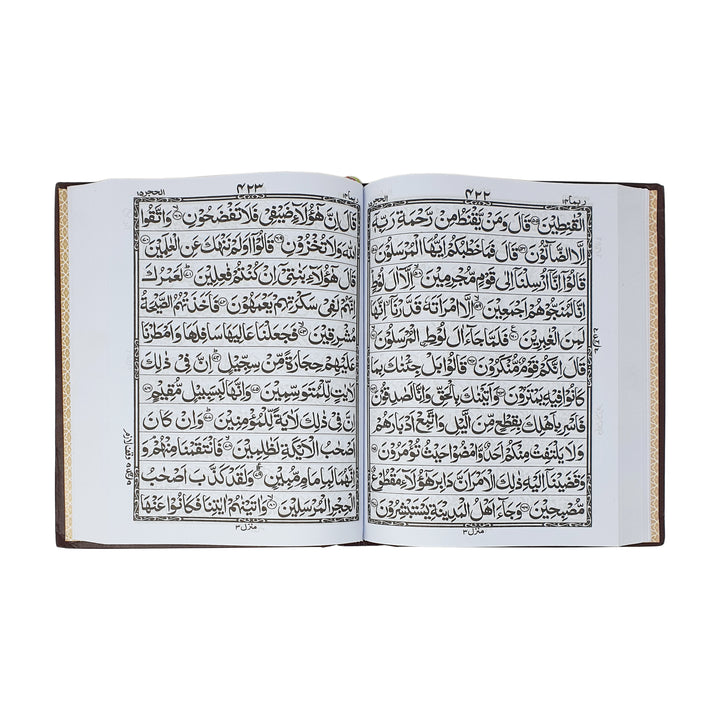 ربما ۱۴ ۴۲۲ الحجر
الْقٰنِطِيْنَ ۵۵ قَالَ وَمَنْ يَّقْنَطُ مِنْ رَّحْمَةِ رَبِّهٖٓ
اِلَّا الضَّآلُّوْنَ ۵۶ قَالَ فَمَا خَطْبُكُمْ اَيُّهَا الْمُرْسَلُوْنَ
قَالُوْٓا اِنَّآ اُرْسِلْنَآ اِلٰى قَوْمٍ مُّجْرِمِيْنَ ۵۸ اِلَّآ اٰلَ لُوْطٍ
اِنَّا لَمُنَجُّوْهُمْ اَجْمَعِيْنَ ۵۹ اِلَّا امْرَاَتَهٗ قَدَّرْنَآ اِنَّهَا
لَمِنَ الْغٰبِرِيْنَ ۶۰ فَلَمَّا جَآءَ اٰلَ لُوْطِ الْمُرْسَلُوْنَ ۶۱
قَالَ اِنَّكُمْ قَوْمٌ مُّنْكَرُوْنَ ۶۲ قَالُوْا بَلْ جِئْنٰكَ بِمَا
كَانُوْا فِيْهِ يَمْتَرُوْنَ ۶۳ وَاَتَيْنٰكَ بِالْحَقِّ وَاِنَّا لَصٰدِقُوْنَ
فَاَسْرِ بِاَهْلِكَ بِقِطْعٍ مِّنَ الَّيْلِ وَاتَّبِعْ اَدْبَارَهُمْ
وَلَا يَلْتَفِتْ مِنْكُمْ اَحَدٌ وَّامْضُوْا حَيْثُ تُؤْمَرُوْنَ ۶۵
وَقَضَيْنَآ اِلَيْهِ ذٰلِكَ الْاَمْرَ اَنَّ دَابِرَ هٰٓؤُلَآءِ مَقْطُوْعٌ
مُّصْبِحِيْنَ ۶۶ وَجَآءَ اَهْلُ الْمَدِيْنَةِ يَسْتَبْشِرُوْنَ ۶۷
منزل ۳
۴۲۳ الحجر ۱۵
قَالَ اِنَّ هٰٓؤُلَآءِ ضَيْفِيْ فَلَا تَفْضَحُوْنِ ۶۸ وَاتَّقُوا
اللّٰهَ وَلَا تُخْزُوْنِ ۶۹ قَالُوْٓا اَوَلَمْ نَنْهَكَ عَنِ الْعٰلَمِيْنَ ۷۰
قَالَ هٰٓؤُلَآءِ بَنٰتِيْٓ اِنْ كُنْتُمْ فٰعِلِيْنَ ۷۱ لَعَمْرُكَ
اِنَّهُمْ لَفِيْ سَكْرَتِهِمْ يَعْمَهُوْنَ ۷۲ فَاَخَذَتْهُمُ الصَّيْحَةُ
مُشْرِقِيْنَ ۷۳ فَجَعَلْنَا عَالِيَهَا سَافِلَهَا وَاَمْطَرْنَا
عَلَيْهِمْ حِجَارَةً مِّنْ سِجِّيْلٍ ۷۴ اِنَّ فِيْ ذٰلِكَ
لَاٰيٰتٍ لِّلْمُتَوَسِّمِيْنَ ۷۵ وَاِنَّهَا لَبِسَبِيْلٍ مُّقِيْمٍ ۷۶
اِنَّ فِيْ ذٰلِكَ لَاٰيَةً لِّلْمُؤْمِنِيْنَ ۷۷ وَاِنْ كَانَ
اَصْحٰبُ الْاَيْكَةِ لَظٰلِمِيْنَ ۷۸ فَانْتَقَمْنَا مِنْهُمْ وَ
اِنَّهُمَا لَبِاِمَامٍ مُّبِيْنٍ ۷۹ وَلَقَدْ كَذَّبَ اَصْحٰبُ
الْحِجْرِ الْمُرْسَلِيْنَ ۸۰ وَاٰتَيْنٰهُمْ اٰيٰتِنَا فَكَانُوْا عَنْهَا
منزل ۳